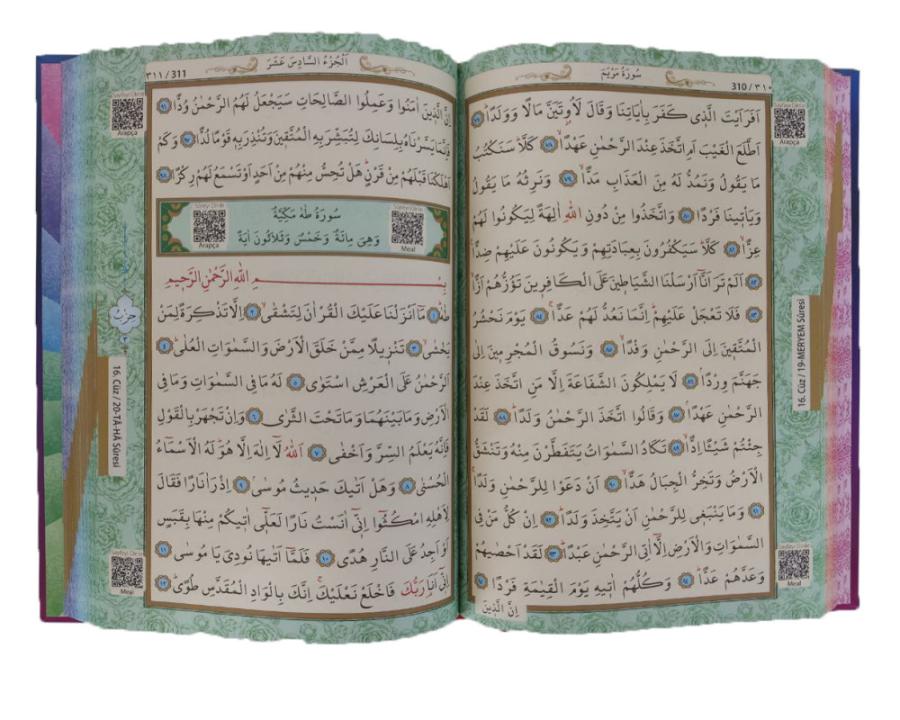 310 / ٣١٠
سُورَةُ مَرْيَمَ
اَفَرَاَيْتَ الَّذ۪ي كَفَرَ بِاٰيَاتِنَا وَقَالَ لَاُو۫تَيَنَّ مَالًا وَوَلَدًاۜ ﴿٧٧﴾
اَطَّلَعَ الْغَيْبَ اَمِ اتَّخَذَ عِنْدَ الرَّحْمٰنِ عَهْدًاۙ ﴿٧٨﴾ كَلَّاۜ سَنَكْتُبُ
مَا يَقُولُ وَنَمُدُّ لَهُ مِنَ الْعَذَابِ مَدًّاۙ ﴿٧٩﴾ وَنَرِثُهُ مَا يَقُولُ
وَيَأْت۪ينَا فَرْدًا ﴿٨٠﴾ وَاتَّخَذُوا مِنْ دُونِ اللّٰهِ اٰلِهَةً لِيَكُونُوا لَهُمْ
عِزًّاۙ ﴿٨١﴾ كَلَّاۜ سَيَكْفُرُونَ بِعِبَادَتِهِمْ وَيَكُونُونَ عَلَيْهِمْ ضِدًّا۟
﴿٨٢﴾ اَلَمْ تَرَ اَنَّٓا اَرْسَلْنَا الشَّيَاط۪ينَ عَلَى الْكَافِر۪ينَ تَؤُزُّهُمْ اَزًّاۙ
﴿٨٣﴾ فَلَا تَعْجَلْ عَلَيْهِمْۜ اِنَّمَا نَعُدُّ لَهُمْ عَدًّاۚ ﴿٨٤﴾ يَوْمَ نَحْشُرُ
الْمُتَّق۪ينَ اِلَى الرَّحْمٰنِ وَفْدًاۙ ﴿٨٥﴾ وَنَسُوقُ الْمُجْرِم۪ينَ اِلٰى
جَهَنَّمَ وِرْدًاۢ ﴿٨٦﴾ لَا يَمْلِكُونَ الشَّفَاعَةَ اِلَّا مَنِ اتَّخَذَ عِنْدَ
الرَّحْمٰنِ عَهْدًاۢ ﴿٨٧﴾ وَقَالُوا اتَّخَذَ الرَّحْمٰنُ وَلَدًاۜ ﴿٨٨﴾ لَقَدْ
جِئْتُمْ شَيْـًٔا اِدًّاۙ ﴿٨٩﴾ تَكَادُ السَّمٰوَاتُ يَتَفَطَّرْنَ مِنْهُ وَتَنْشَقُّ
الْاَرْضُ وَتَخِرُّ الْجِبَالُ هَدًّاۙ ﴿٩٠﴾ اَنْ دَعَوْا لِلرَّحْمٰنِ وَلَدًاۚ
﴿٩١﴾ وَمَا يَنْبَغ۪ي لِلرَّحْمٰنِ اَنْ يَتَّخِذَ وَلَدًاۜ ﴿٩٢﴾ اِنْ كُلُّ مَنْ فِي
السَّمٰوَاتِ وَالْاَرْضِ اِلَّٓا اٰتِي الرَّحْمٰنِ عَبْدًاۜ ﴿٩٣﴾ لَقَدْ اَحْصٰيهُمْ
وَعَدَّهُمْ عَدًّاۜ ﴿٩٤﴾ وَكُلُّهُمْ اٰت۪يهِ يَوْمَ الْقِيٰمَةِ فَرْدًا ﴿٩٥﴾
اِنَّ الَّذ۪ينَ
Arapça
Meal
16. Cüz / 19-MERYEM Sûresi
اَلْجُزْءُ السَّادِسَ عَشَرَ
٣١١ / 311
اِنَّ الَّذ۪ينَ اٰمَنُوا وَعَمِلُوا الصَّالِحَاتِ سَيَجْعَلُ لَهُمُ الرَّحْمٰنُ وُدًّا ﴿٩٦﴾
فَاِنَّمَا يَسَّرْنَاهُ بِلِسَانِكَ لِتُبَشِّرَ بِهِ الْمُتَّق۪ينَ وَتُنْذِرَ بِه۪ قَوْمًا لُدًّا ﴿٩٧﴾ وَكَمْ
اَهْلَكْنَا قَبْلَهُمْ مِنْ قَرْنٍۜ هَلْ تُحِسُّ مِنْهُمْ مِنْ اَحَدٍ اَوْ تَسْمَعُ لَهُمْ رِكْزًا ﴿٩٨﴾
سُورَةُ طٰهٰ مَكِّيَّةٌ
وَهِيَ مِائَةٌ وَخَمْسٌ وَثَلَاثُونَ اٰيَةً
Arapça
Meal
بِسْمِ اللّٰهِ الرَّحْمٰنِ الرَّح۪يمِ
طٰهٰۜ ﴿١﴾ مَٓا اَنْزَلْنَا عَلَيْكَ الْقُرْاٰنَ لِتَشْقٰىۙ ﴿٢﴾ اِلَّا تَذْكِرَةً لِمَنْ
يَخْشٰىۙ ﴿٣﴾ تَنْز۪يلًا مِمَّنْ خَلَقَ الْاَرْضَ وَالسَّمٰوَاتِ الْعُلٰىۜ ﴿٤﴾
اَلرَّحْمٰنُ عَلَى الْعَرْشِ اسْتَوٰى ﴿٥﴾ لَهُ مَا فِي السَّمٰوَاتِ وَمَا فِي
الْاَرْضِ وَمَا بَيْنَهُمَا وَمَا تَحْتَ الثَّرٰى ﴿٦﴾ وَاِنْ تَجْهَرْ بِالْقَوْلِ
فَاِنَّهُ يَعْلَمُ السِّرَّ وَاَخْفٰى ﴿٧﴾ اَللّٰهُ لَٓا اِلٰهَ اِلَّا هُوَۜ لَهُ الْاَسْمَٓاءُ
الْحُسْنٰى ﴿٨﴾ وَهَلْ اَتٰيكَ حَد۪يثُ مُوسٰىۢ ﴿٩﴾ اِذْ رَاٰ نَارًا فَقَالَ
لِاَهْلِهِ امْكُثُٓوا اِنّ۪ٓي اٰنَسْتُ نَارًا لَعَلّ۪ٓي اٰت۪يكُمْ مِنْهَا بِقَبَسٍ
اَوْ اَجِدُ عَلَى النَّارِ هُدًى ﴿١٠﴾ فَلَمَّٓا اَتٰيهَا نُودِيَ يَا مُوسٰى ﴿١١﴾
اِنّ۪ٓي اَنَا۬ رَبُّكَ فَاخْلَعْ نَعْلَيْكَۚ اِنَّكَ بِالْوَادِ الْمُقَدَّسِ طُوًىۜ ﴿١٢﴾
Arapça
حِزْبٌ
16. Cüz / 20-TÂ-HÂ Sûresi
Meal